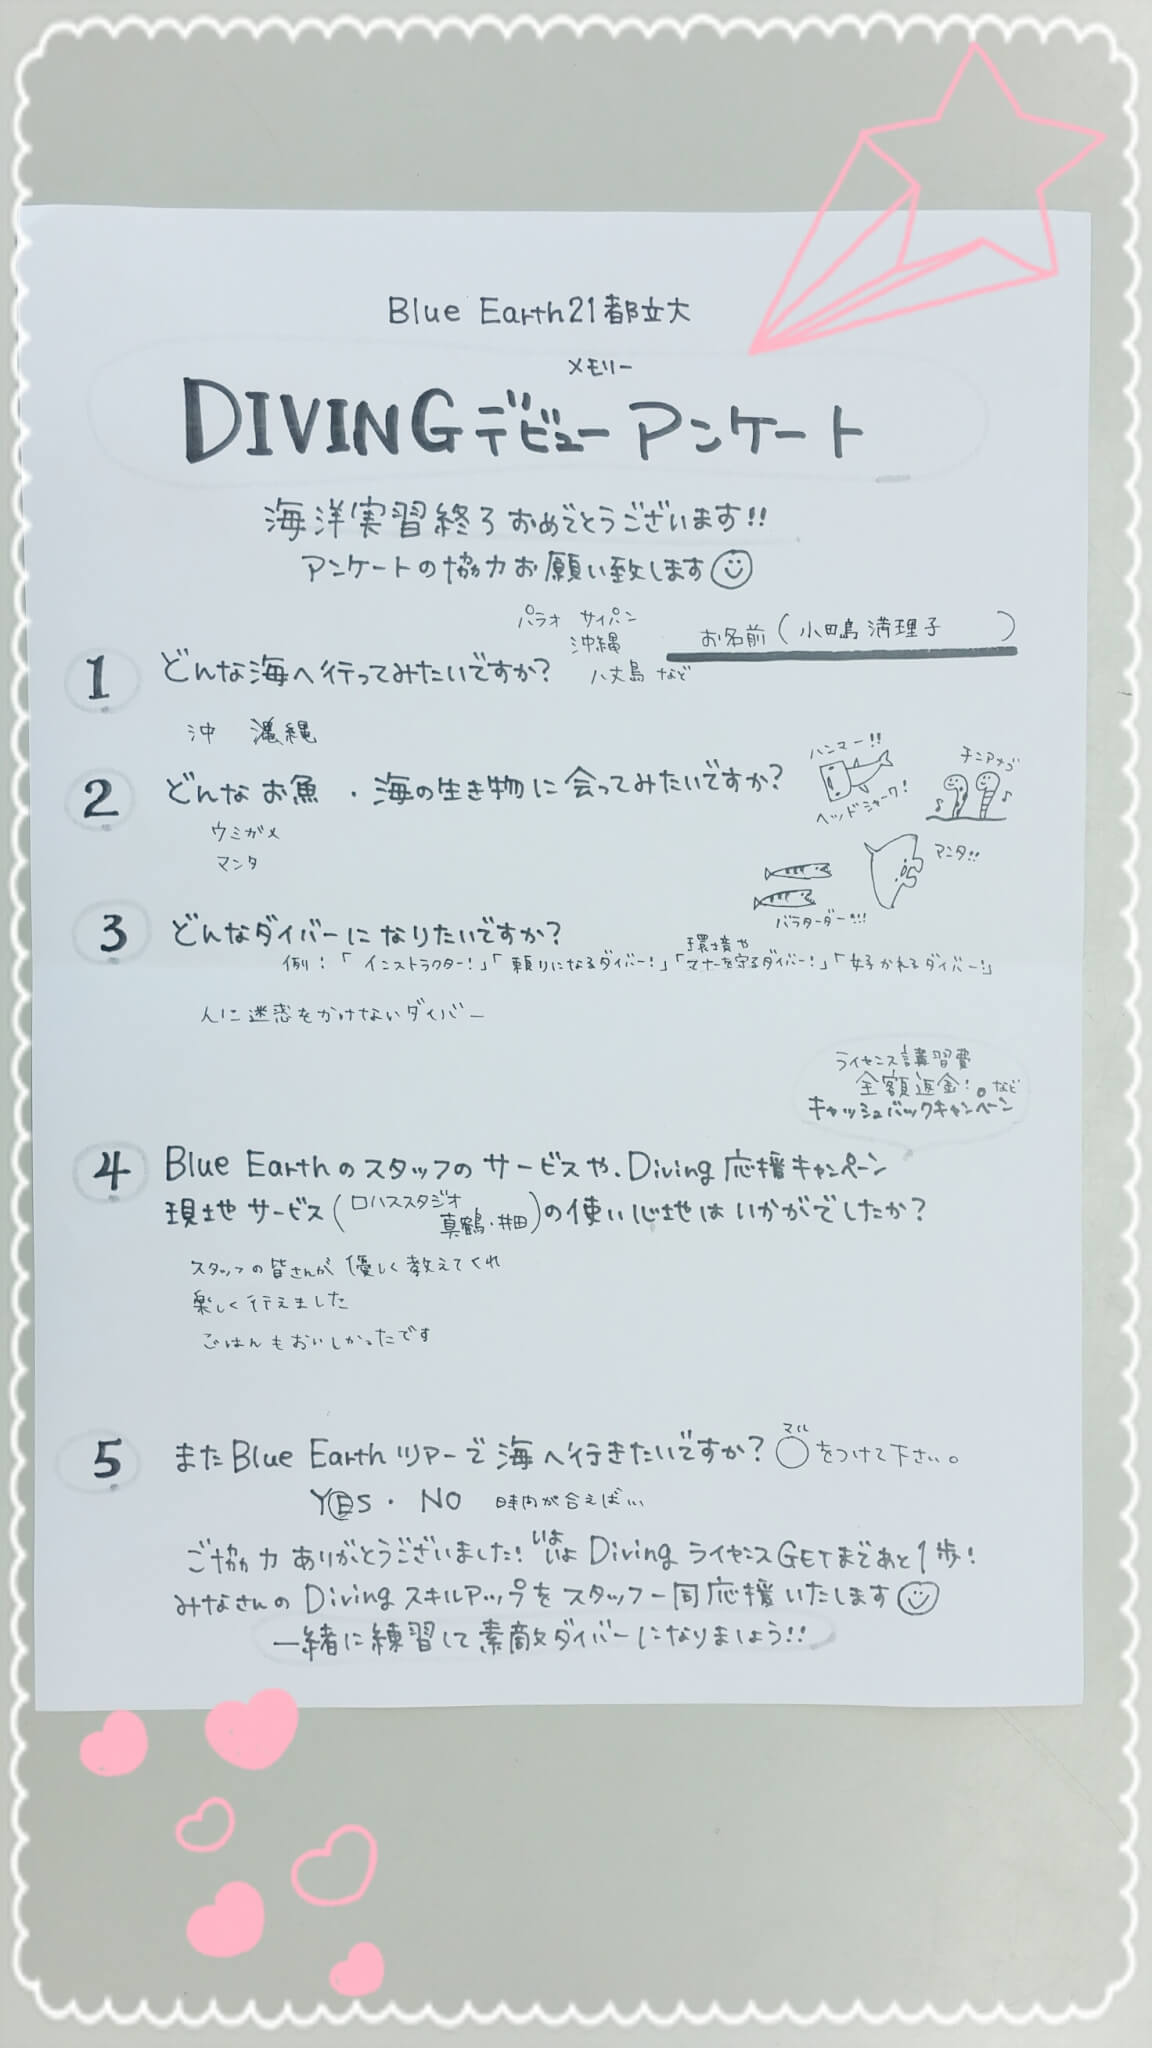 Blue Earth21都立大
メモリー
DIVINGデビューアンケート
海洋実習終了おめでとうございます!!
アンケートの協力お願い致します
お名前(小田島 満理子)
1 どんな海へ行ってみたいですか?
パラオ サイパン
沖縄
八丈島 など
沖 縄
2 どんなお魚・海の生き物に会ってみたいですか?
ハンマー!!
ヘッドシャーク!
チンアナゴ
マンタ!!
バラクーダー!!!
ウミガメ
マンタ
3 どんなダイバーになりたいですか?
例!「インストラクター!」「頼りになるダイバー!」「環境やマナーを守るダイバー!」「好かれるダイバー!」
人に迷惑をかけないダイバー
ライセンス講習費
全額返金!。など
キャッシュバックキャンペーン
4 Blue Earthのスタッフのサービスや、Diving応援キャンペーン
現地サービス(ロハススタジオ 真鶴・井田)の使い心地はいかがでしたか?
スタッフの皆さんが優しく教えてくれ
楽しく行えました
ごはんもおいしかったです
5 またBlue Earthツアーで海へ行きたいですか? ○マルをつけて下さい。
YES・NO 時内が合えば…
ご協力ありがとうございました!いよいよDivingライセンスGETまであと1歩!
みなさんのDivingスキルアップをスタッフ一同応援いたします
一緒に練習して素敵ダイバーになりましょう!!